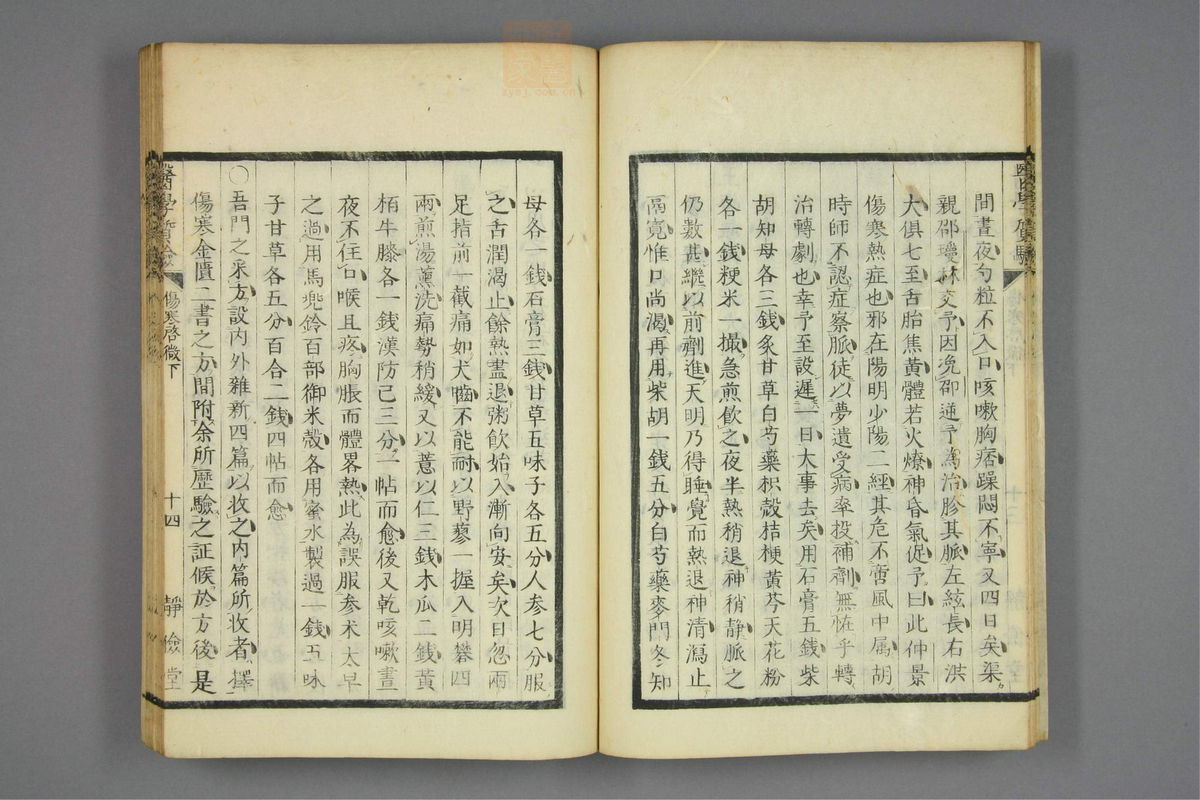 間晝夜勺粒不入口咳嗽胸痞躁悶不寧又四日矣渠
親邵瓊林交予因浼邵逆予為治脉其脈左絃長右洪
大俱七至舌胎焦黃體若火燎神昏氣促予曰此仲景
傷寒熱症也邪在陽明少陽二經其危不啻風中属胡
時師不認症察脈徒以夢遺受病率投補劑無怪乎轉
治轉劇也幸予至設遲一日大事去矣用石膏五錢柴
胡知母各三錢炙甘草白芍藥枳殼桔梗黃芩天花粉
各一錢粳米一撮急煎飲之夜半熱稍退神稍靜脈之
仍數甚繼以前劑進天明乃得睡覺而熱退神清瀉止
膈寬惟口尚渴再用柴胡一錢五分白芍藥麥門冬知
母各一錢石膏三錢甘草五味子各五分人参七分服
之舌潤渴止餘熱盡退粥飲始入漸向安矣次日忽兩
足指前一截痛如犬嚙不能耐以野蓼一握入明礬四
兩煎湯薰洗痛勢稍緩又以薏以仁三錢木瓜二錢黃
栢牛膝各一錢漢防己三分一帖而愈後又乾咳嗽晝
夜不住口喉且疼胸脹而體畧熱此為誤服参术太早
之過用馬兜鈴百部御米殼各用蜜水製過一錢五味
子甘草各五分百合二錢四帖而愈
○吾門之采方設內外雜新四篇以收之內篇所收者擇
傷寒金匱二書之方間附余所歷驗之証候於方後是
傷寒啓微下
十四
靜儉堂